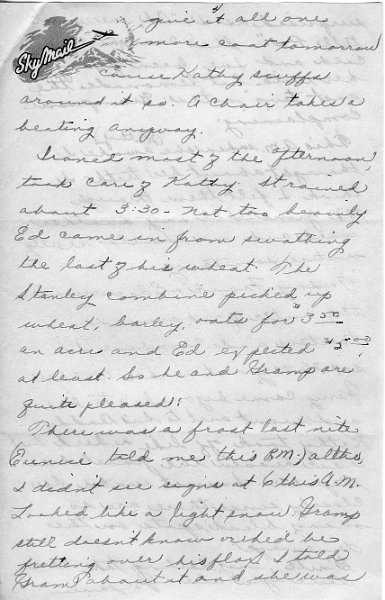 Sky Mail
give it all one
more coat tomorrow
'cause Kathy scuffs
around it so. A chair takes a
beating anyway.
Ironed most of the afternoon,
took care of Kathy. It rained
about 3:30 - not too heavily
Ed came in from swathing
the last of his wheat. The
Stanley combine picked up
wheat, barley, oats for $3.50
an acre and Ed expected $5.00
at least. So he and Gramp are
quite pleased!
There was a frost last nite
(Eunice told me this P.M.) altho,
I didn't see signs at 6 this A.M.
Looked like a light snow. Gramp
still doesn't know or he'd be
fretting over his flax. I told
Gram about it and she was